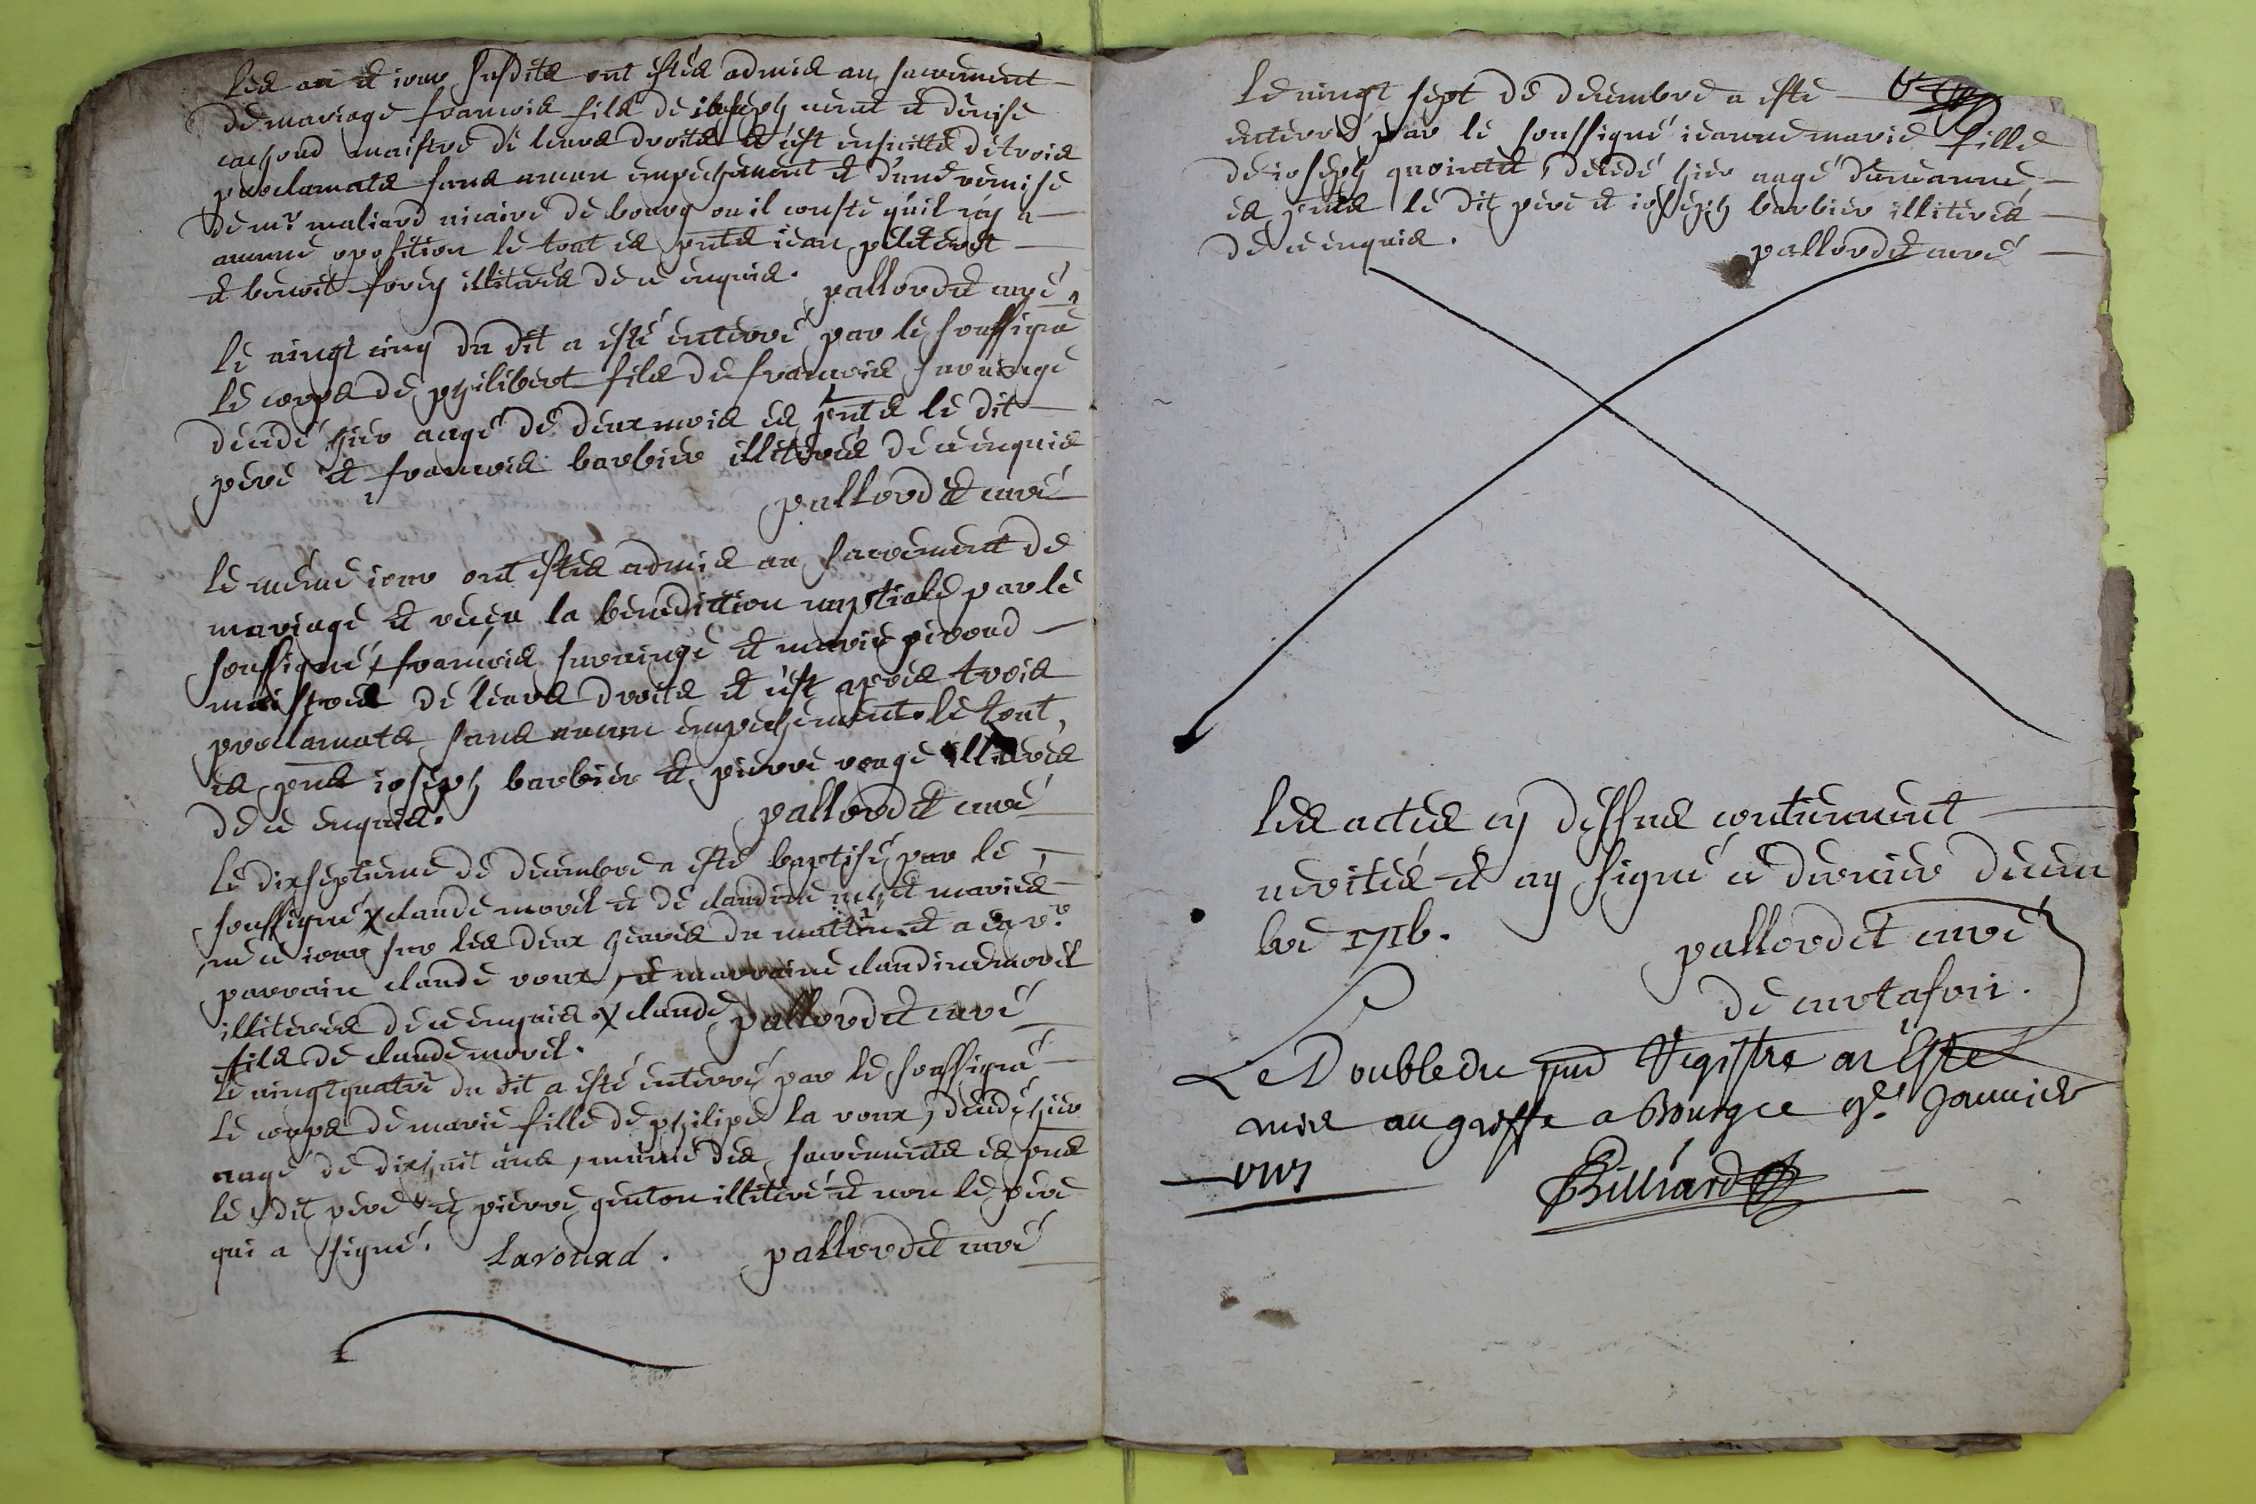 les an et iour susdits ont estés admis au sacrement
de mariage francois fils de ioseph et denise
maistre de leurs droits et c'est ensuitte de trois
proclamats sans aucun empechement et d'une remise
de mr maliard vicaire de bourg ou il conste qu'il n'y a
aucune oposition le tout es pnts iean
et benoit forey illiterés de ce enquis. pallordet curé
le vingt cinq du dit a esté enterré par le soussigné
le corps de philibert fils de francois survinge
decedé hier aagé de deux mois es pnts le dit
pere et francois barbier illiterés de ce enquis
pallordet curé
le même iour ont estés admis au sacrement de
mariage et reçeu la benediction nuptiale par le
soussigné, francois survinge et marie peroud
maistres de leurs droits et c'est après trois
proclamats sans aucun empechement. le tout
es pnts ioseph barbier et pierre rouge illiterés
de ce enquis. pallordet curé
le dixseptieme de decembre a esté baptisé par le
soussigné X claude morel et de claudine mariés
né ce iour sur les deux heures du matin et a eu pr
parrain claude roux, et marraine claudine morel
illiterés de ce enquis X claude pallordet curé
fils de claude morel.
le vingt quatre du dit a esté enterré par le soussigné
le corps de marie fille de philipe la roux, decedé hier
aagé de dixhuit ans, munie des sacrements es pnts
le dit pere et pierre genton illiteré et non le pere
qui a signé. Larouxd. pallordet curé
le vingt sept de decembre a esté
enterré par le soussigné ieanne marie fille
de ioseph decedé hier aagé d'une année
es pnts le dit pere et ioseph barbier illiterés
de ce enquis. pallordet curé
les actes cy dessus contiennent
verités et ay signé ce dernier decem
bre 1716. pallordet curé
de curtafon.
Le Double du pnt Registre a Este
mis au greffe a Bourg ce 9e Jannier
1717 Billiard